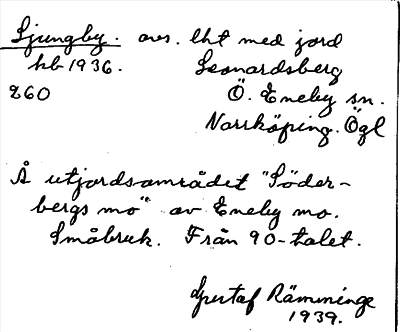 Ljungby. avs. lht med jord
hb 1936. Leonardsberg
260 Ö. Eneby sn.
Norrköping. Ögl
Å utjordsområdet "Söder-
bergs mo" av Eneby mo.
Småbruk. Från 90-talet.
Gustaf Rämminge
1939.